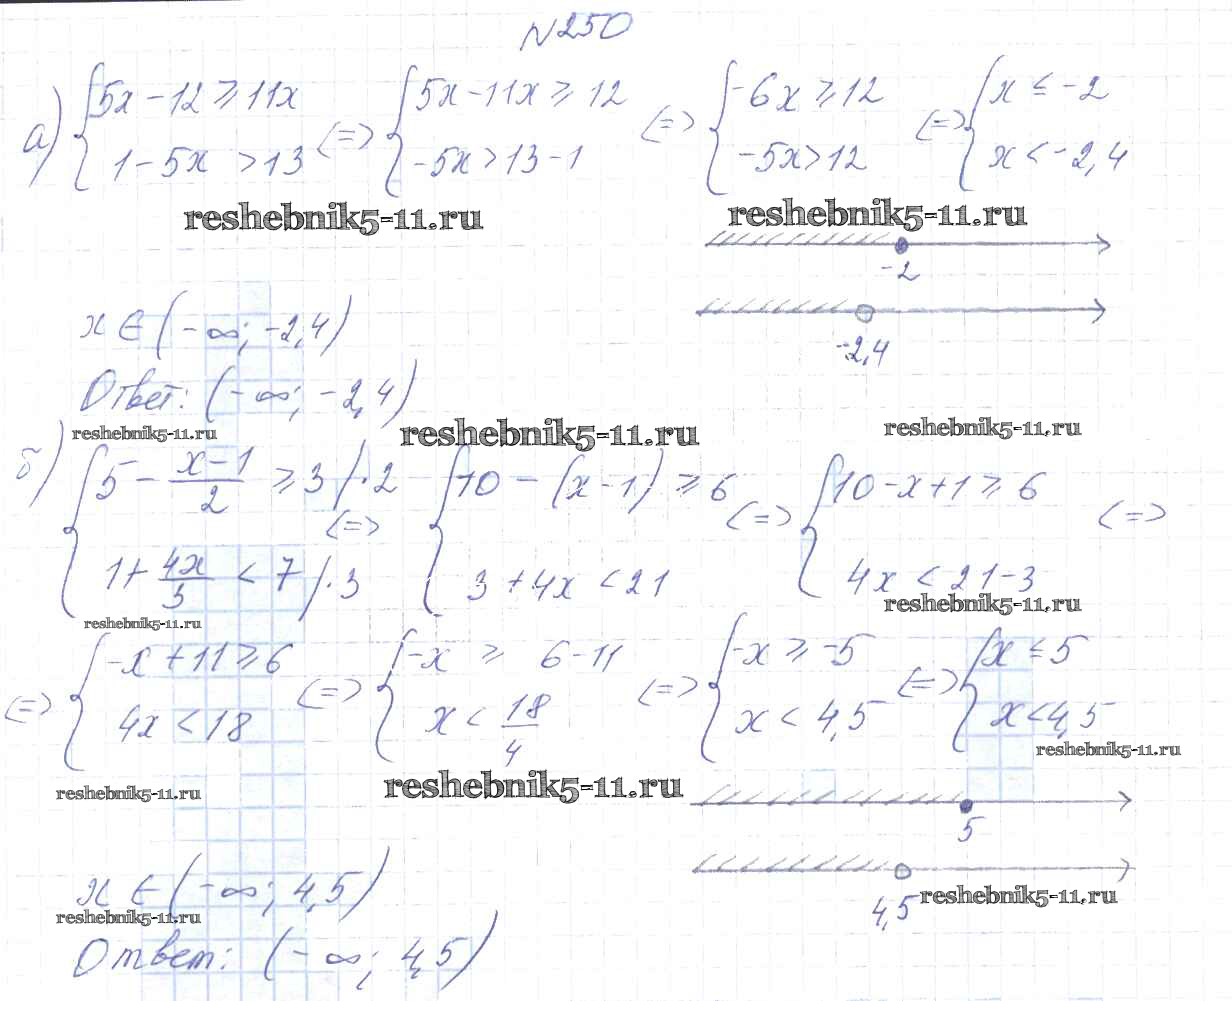 N250
а) { 5x - 12 ≥ 11x (=> { 5x - 11x ≥ 12 (=> { -6x ≥ 12 (=> { x ≤ -2
1 - 5x > 13 -5x > 13 - 1 -5x > 12 x < -2,4
reshebnik5-11.ru reshebnik5-11.ru
-2
x ∈ (-∞; -2,4)
-2,4
Ответ: (-∞; -2,4)
reshebnik5-11.ru reshebnik5-11.ru reshebnik5-11.ru
б) { 5 - (x-1)/2 ≥ 3 /·2 (=> { 10 - (x-1) ≥ 6 (=> { 10 - x + 1 ≥ 6 (=>
1 + 4x/3 < 7 /·3 3 + 4x < 21 4x < 21 - 3
reshebnik5-11.ru reshebnik5-11.ru
(=> { -x + 11 ≥ 6 (=> { -x ≥ 6 - 11 (=> { -x ≥ -5 (=> { x ≤ 5
4x < 18 x < 18/4 x < 4,5 x < 4,5
reshebnik5-11.ru
reshebnik5-11.ru reshebnik5-11.ru
5
x ∈ (-∞; 4,5)
4,5 reshebnik5-11.ru
reshebnik5-11.ru
Ответ: (-∞; 4,5)